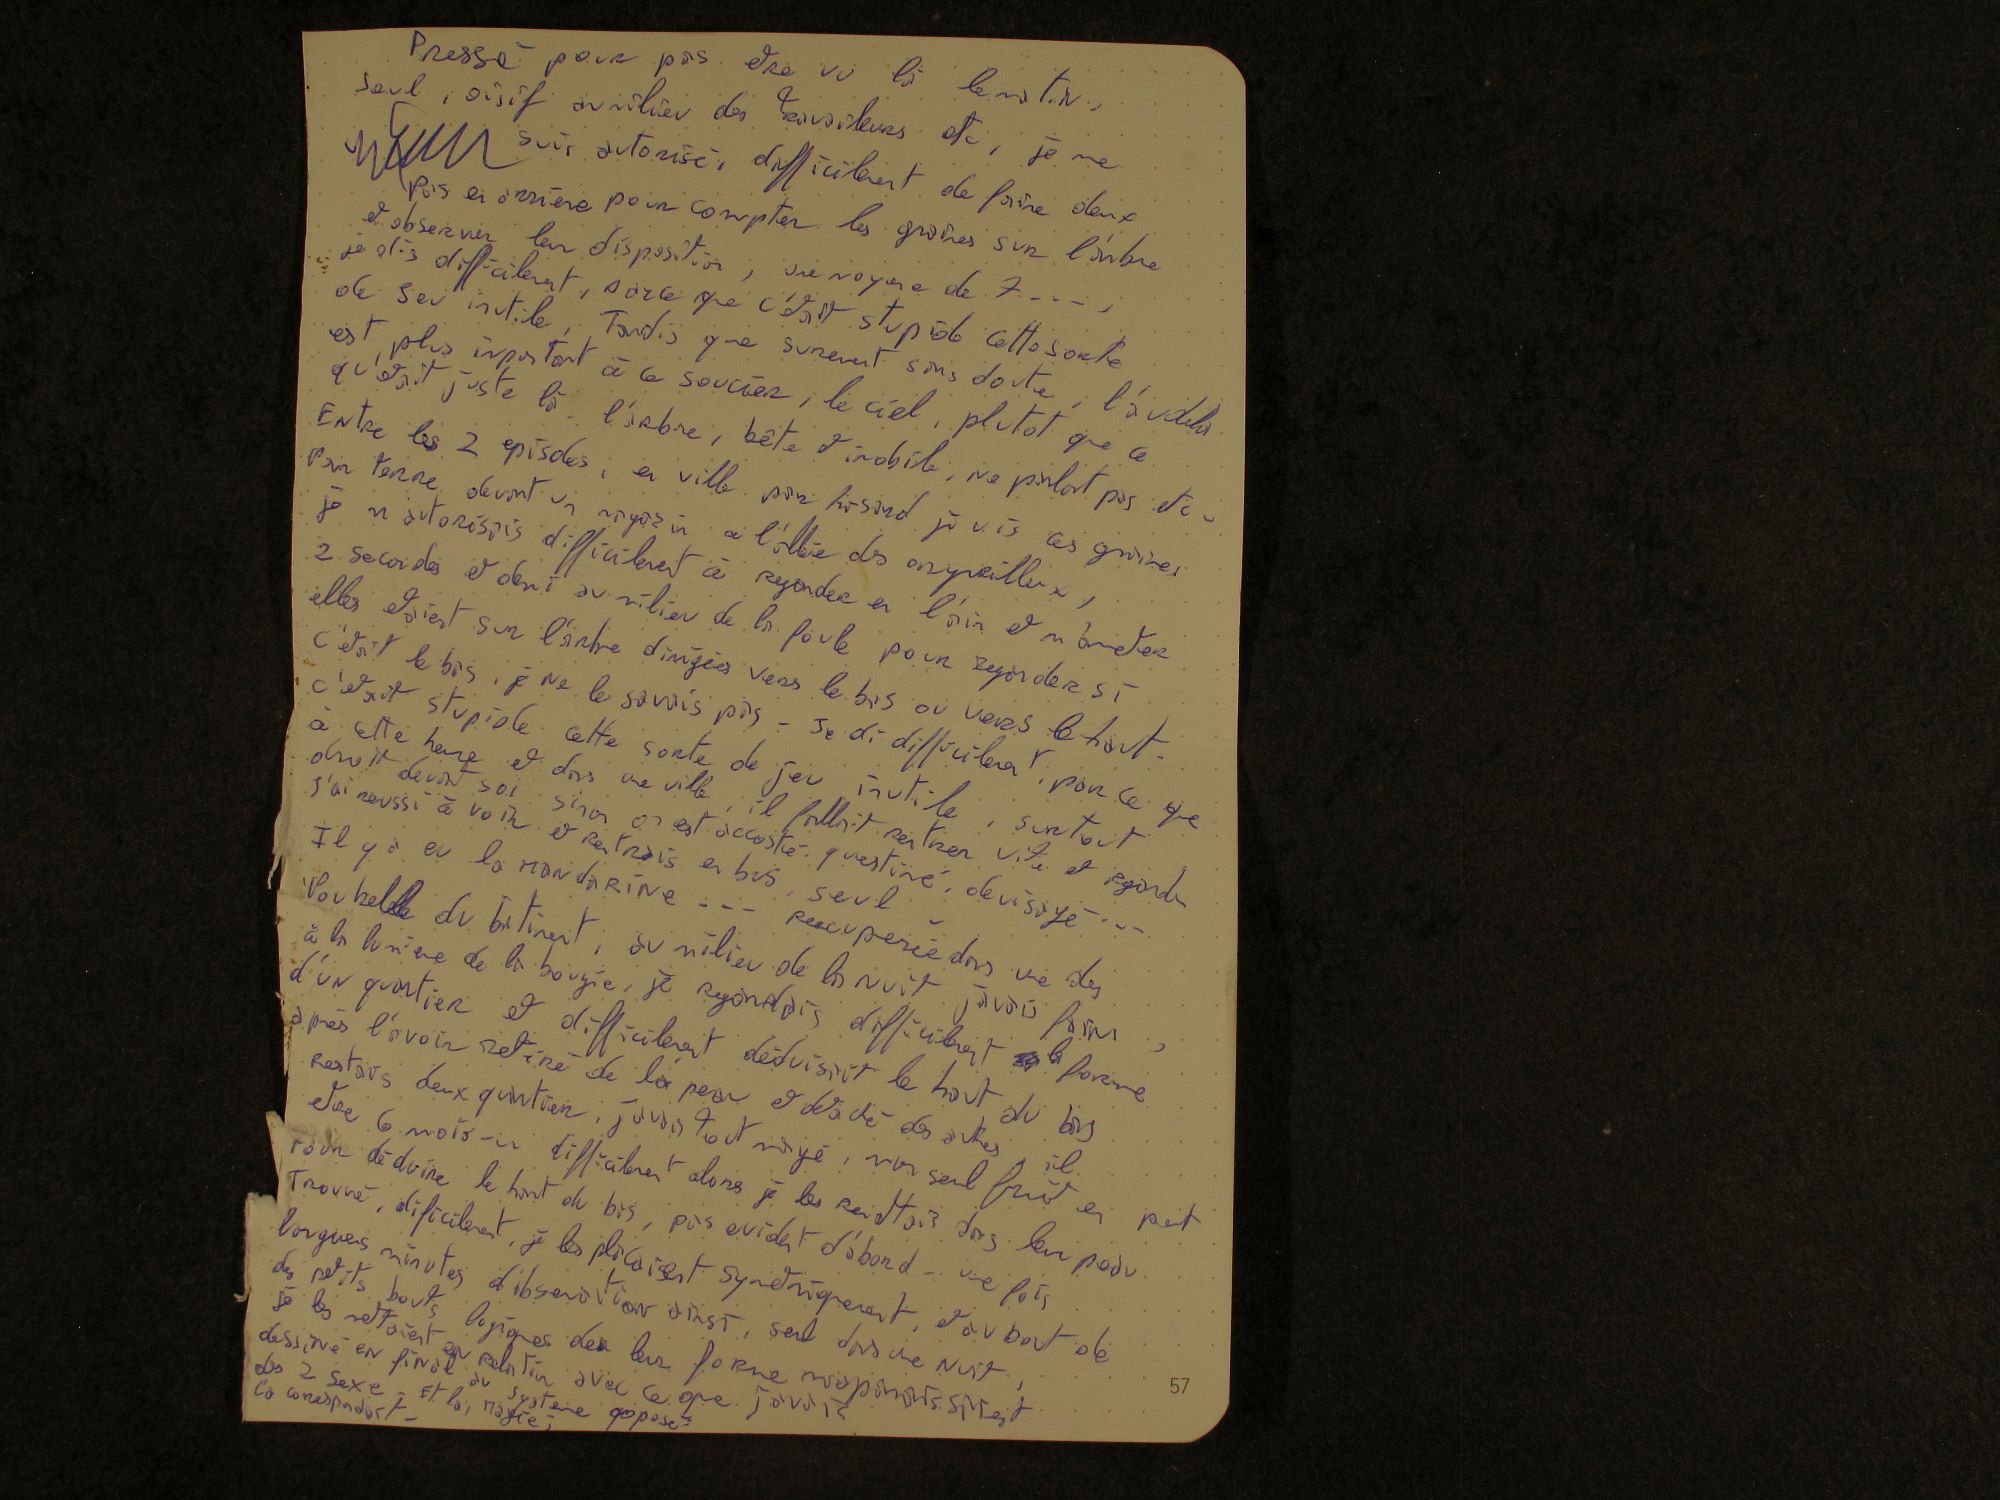 Pressé pour pas etre vu là le matin,
seul, oisif au milieu des travailleurs etc, je me
suis autorisé, difficilement de faire deux
pas en arrière pour compter les graines sur l'arbre
et observer leur disposition, une moyene de 7 - - - ,
je dis difficilement, parce que c'était stupide cette sorte
de jeu inutile, Tandis que surement sans doute, l'audela
est plus important à ce soucier, le ciel, plutot que ce
qu'etait juste là - l'arbre, bête et imobile, ne parlant pas etc -
Entre les 2 episodes, en ville par hasard je vis ces graines
par terre devant un magasin a l'allée des
je m'autorisais difficilement à regarder en l'air et m'arreter
2 secondes et demi au milieu de la foule pour regarder si
elles etaient sur l'arbre dirigées vers le bas ou vers le haut -
c'était le bas, je ne le savais pas - Je di difficilement, par ce que
c'etait stupide cette sorte de jeu inutile, surtout
à cette heure et dans une ville, il fallait rentrer vite et regarder
droit devant soi sinon on est accosté, questiné, devisagé - - -
J'ai reussi à voir et rentrais en bus, seul -
Il y a eu la MANDARINE - - - recuperée dans une des
Poubelle du batiment, au milieu de la nuit j'avais faim,
à la lumiere de la bougie, je regardais difficilement la forme
d'un quartier et difficilement déduisait le haut du bas
après l'avoir retiré de la peau et détaché des autres, il
restais deux quartier, j'avais tout mangé, mon seul fruit en peut
etre 6 mois - difficilement alors je les remettais dans leur peau
Pour déduire le haut du bas, pas evident d'abord - une fois
Trouvé, dificilement, je les plicaient symetriquement, et au bout de
longues minutes d'observation ainsi, seul dans une nuit,
des petits bouts logiques de leur forme
je les mettaient en relation avec ce que j'avais
dessiné en final au systeme opposé
des 2 sexe - Et là, magie,
ca correspondait -
57